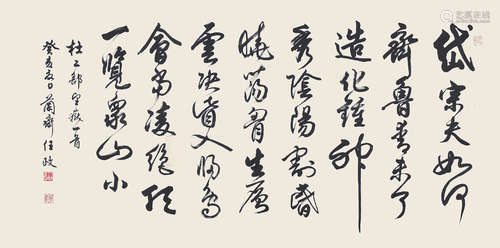 岱宗夫如何
齊魯青未了
造化鍾神
秀陰陽割昏
曉蕩胷生層
雲決眥入歸鳥
會當凌絕頂
一覽眾山小
杜工部望嶽一首
癸亥夏日蘭齋任政